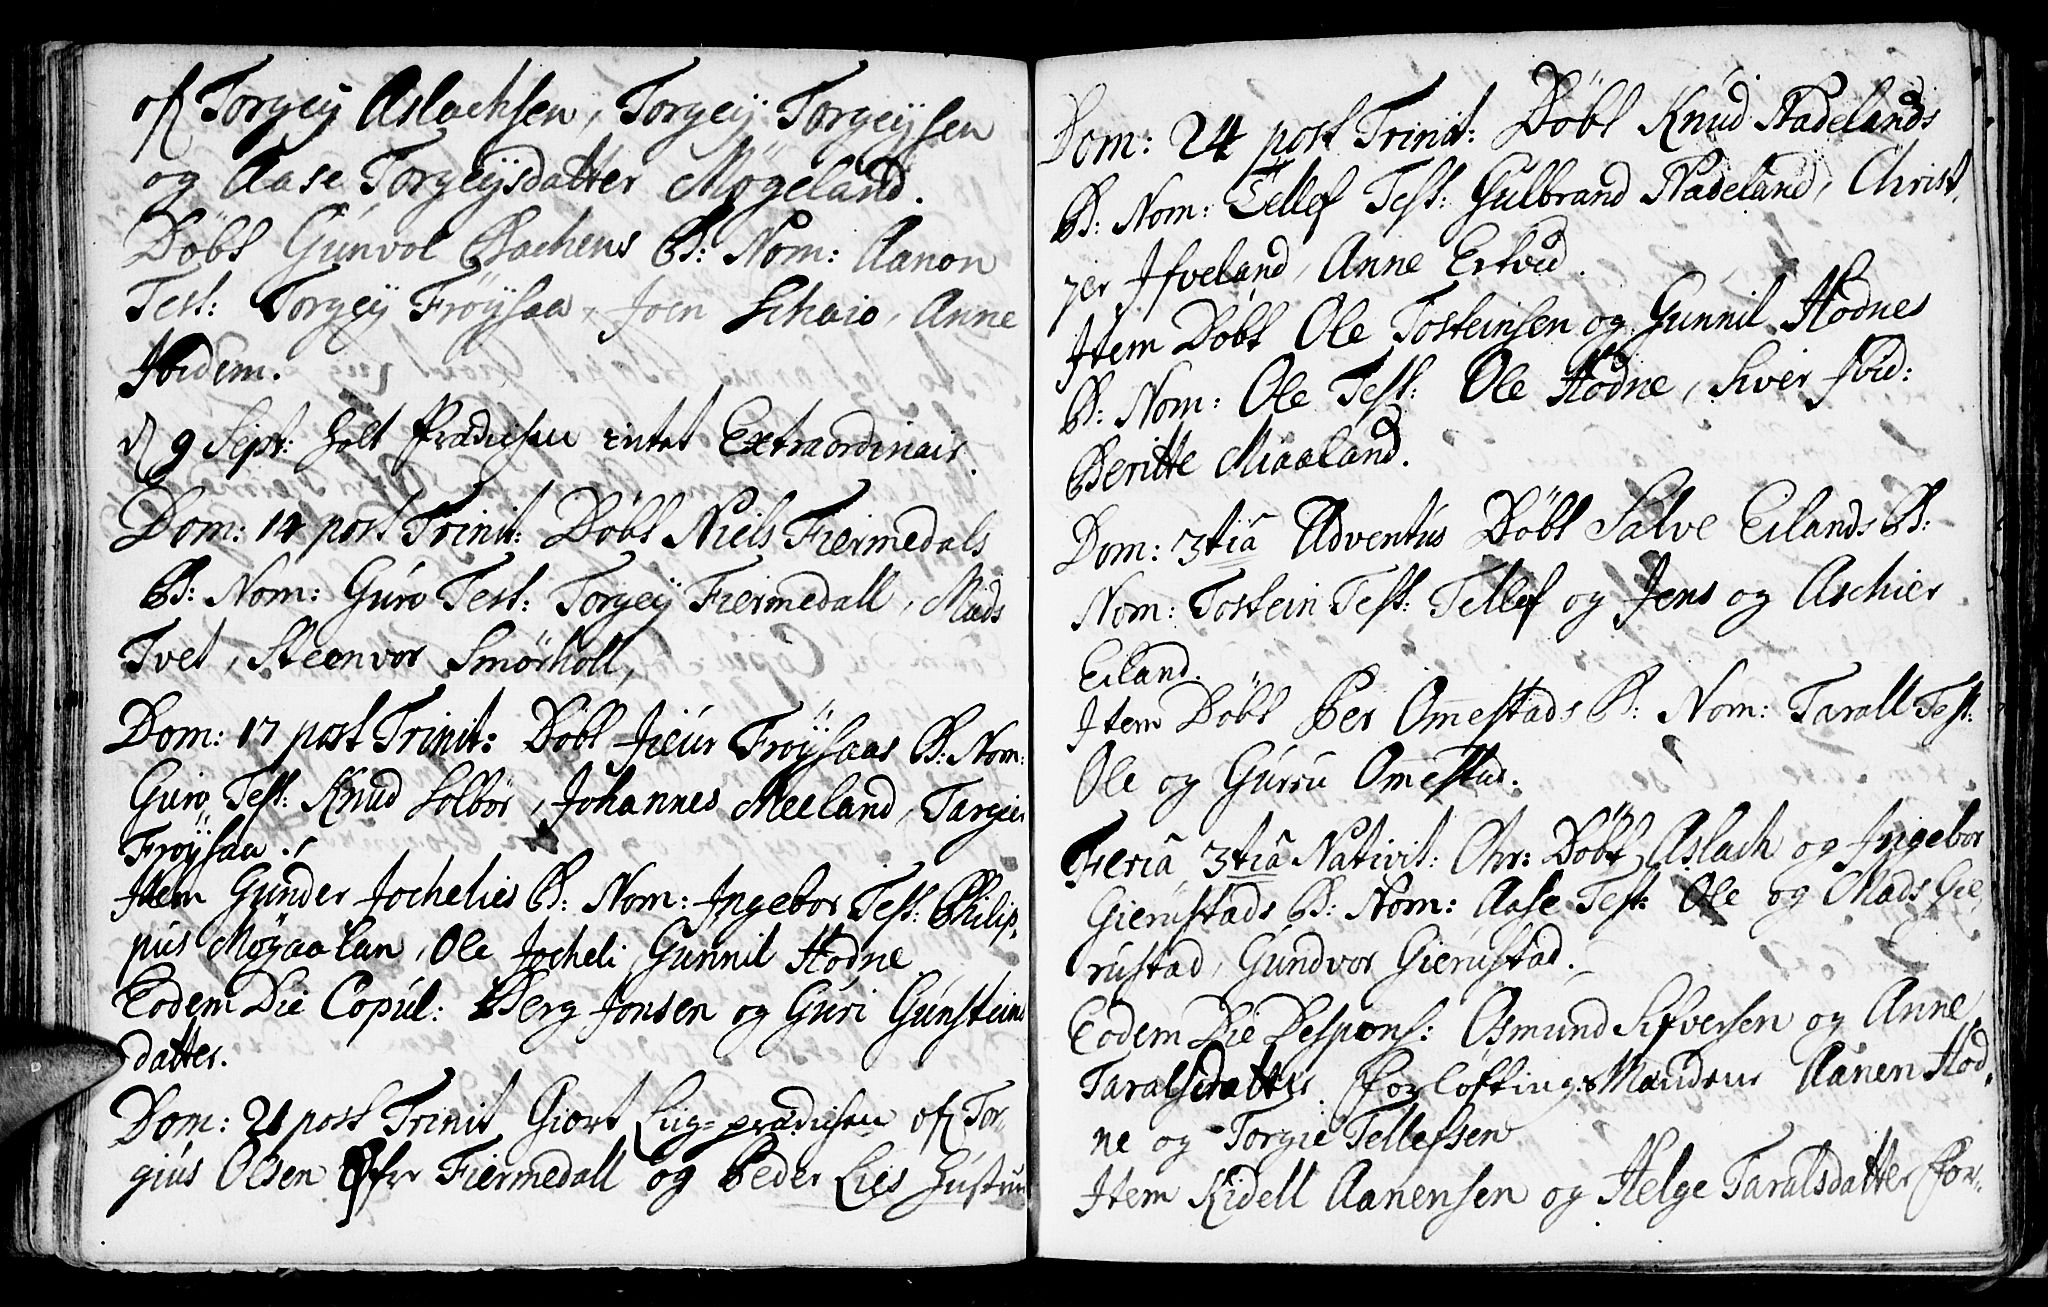 of Torgeÿ Aslachsen, Torgeÿ Torgeÿsen
og Aase Torgeÿsdatter Mögeland.
Döbt Gunvol Bachens B: Nom: Aanon
Test: Torgeÿ Fröÿsaa, Joen Schaio, Anne
Ibidem.
d 9 Sept: holt Prædichen intet Extraordinair.
Dom: 14 post Trinit: Döbt Niels Fiermedals
B: Nom: Guro Test: Torgeÿ Fiermedall, Mads
Tvet, Steenvor Smörholt,
Dom: 17 post Trinit: Döbt Fröÿsaas B: Nom:
Guro, Test: Knud Solbör, Johannes Meeland, Targier
Fröÿsaa.
Item Gunder Jochelies B: Nom: Ingebor Test: Philip-
pus Moÿaalan, Ole Jocheli Gunnil Hodne
Eodem Die Copul: Berg Jonsen og Guri Gunsteins
datter.
Dom: 21 post Trinit Giort Liig-prædichen of Tor-
gius Olsen Fiermedall og Peder Lies Hustru
Dom: 24 post Trinit: Döbt Knud Nadelands
B: Nom: Tellef Test: Gulbrand Nadeland, Christ,
Ifveland, Anne Ertvid.
Item Döbt Ole Tosteinsen og Gunnil Hodnes
B: Nom: Ole Test: Ole Hodne, Siver Ibid:
Beritte Miaaland.
Dom: 3tiâ Adventus Döbt Salve Eilands B:
Nom: Tostein Test: Tellef og Jens og Aschier
Eiland.
Item Döbt Per Omestads B: Nom: Tarall Test:
Ole og Gurru Omestad.
Feria 3tiâ Nativit: Chr: Döbt Aslach og Ingebor
Gierustads B: Nom: Aase Test: Ole og Mads Gie-
rustad, Gundvor Gierustad.
Eodem Die Despons: Osmund Sifversen og Anne
Taralsdatter. Forlöftings Mændene Aanen Hod-
ne og Torgie Tellefsen
Item Kidell Aanensen og Helge Taralsdatter For-